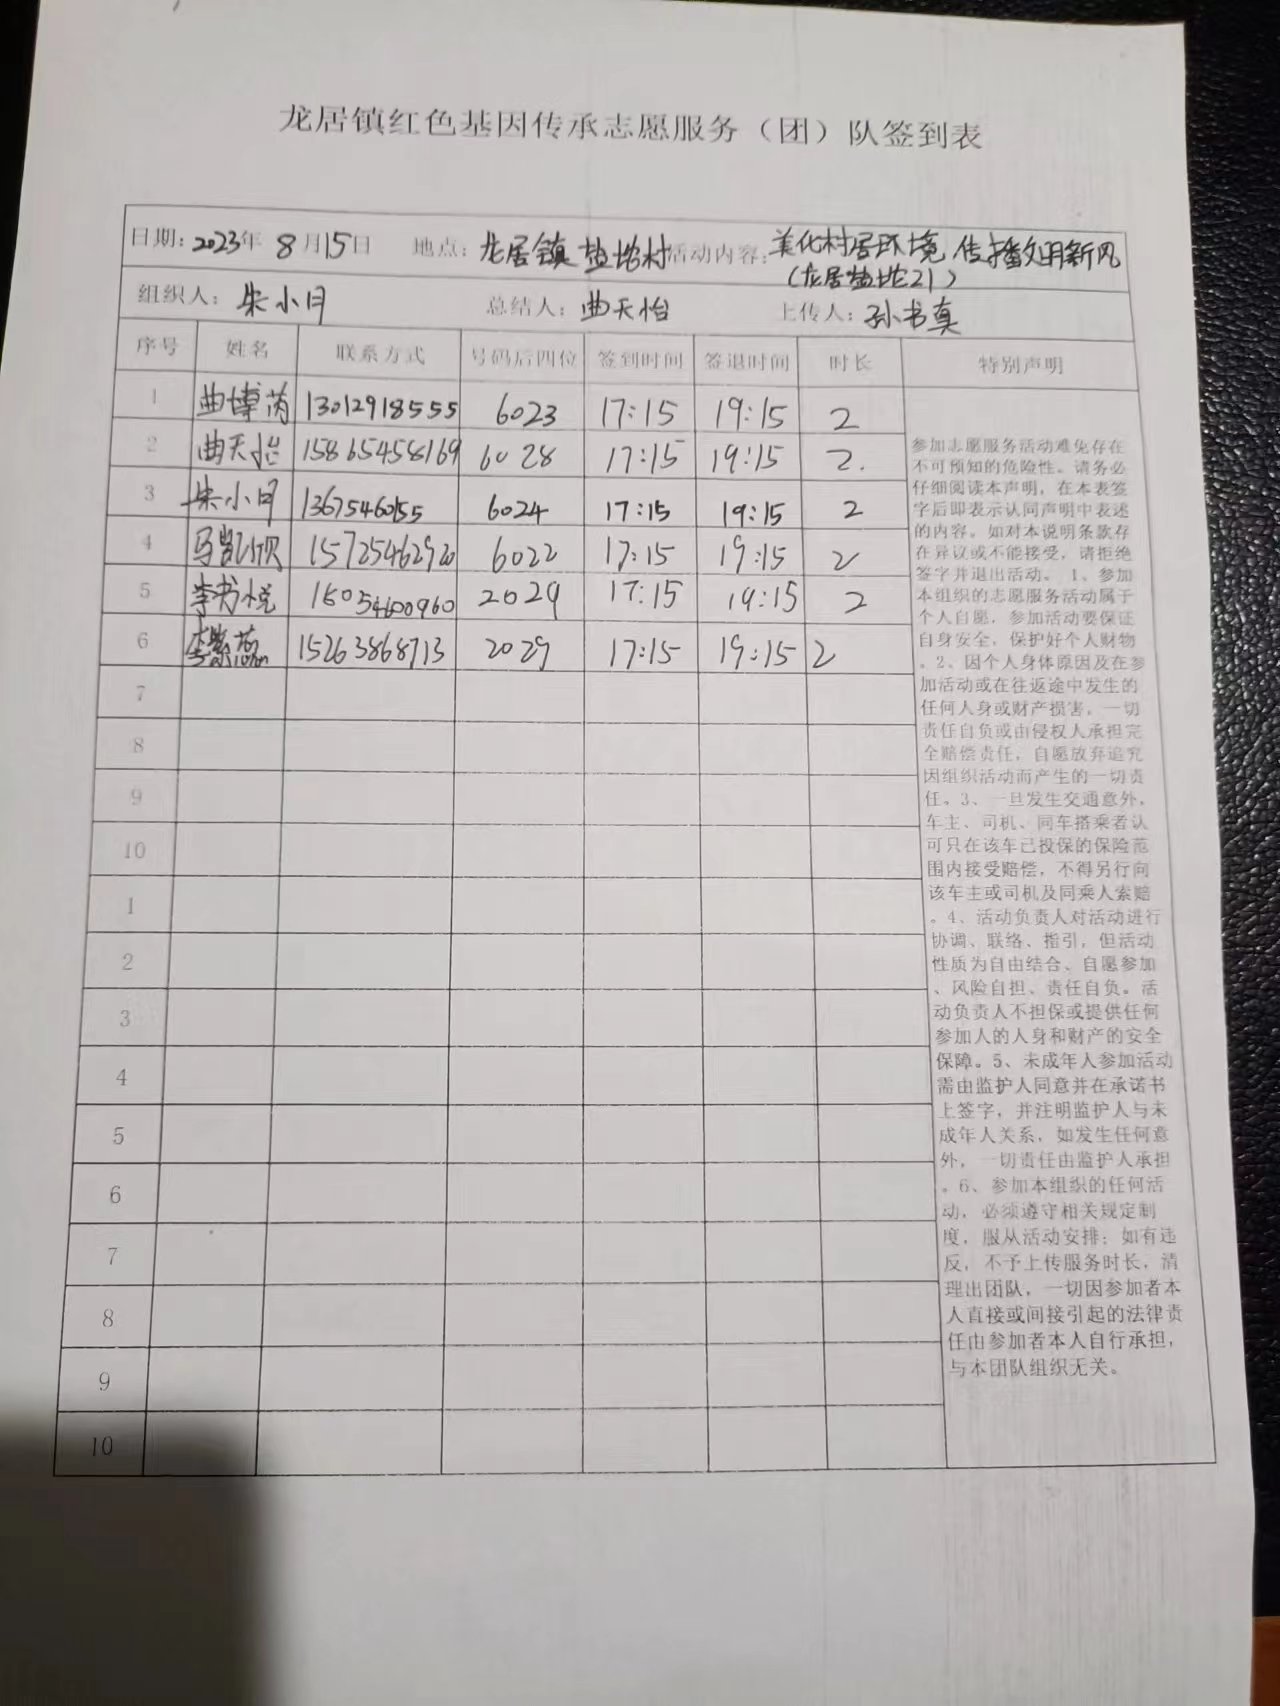 龙居镇红色基因传承志愿服务（团）队签到表
日期：2023年 8月15日 地点：龙居镇盐坨村 活动内容：美化村居环境 传播文明新风
（龙居盐坨21）
组织人：朱小月 总结人：曲天怡 上传人：孙书真
序号 姓名 联系方式 号码后四位 签到时间 签退时间 时长 特别声明
1 曲博芮 13012918555 6023 17:15 19:15 2
2 曲天怡 15865458169 6028 17:15 19:15 2.
3 朱小月 1367546055 6024 17:15 19:15 2
4 马凯欣 15725462920 6022 17:15 19:15 2
5 李书悦 18054600960 2029 17:15 19:15 2
6 李 15263868713 2029 17:15 19:15 2
7
8
9
10
1
2
3
4
5
6
7
8
9
10
参加志愿服务活动难免存在
不可预知的危险性。请务必
仔细阅读本声明，在本表签
字后即表示认同声明中表述
的内容。如对本说明条款存
在异议或不能接受，请拒绝
签字并退出活动。 1、参加
本组织的志愿服务活动属于
个人自愿，参加活动要保证
自身安全，保护好个人财物
。2、因个人身体原因及在参
加活动或在往返途中发生的
任何人身或财产损害，一切
责任自负或由侵权人承担完
全赔偿责任，自愿放弃追究
因组织活动而产生的一切责
任。3、一旦发生交通意外，
车主、司机、同车搭乘者认
可只在该车已投保的保险范
围内接受赔偿，不得另行向
该车主或司机及同乘人索赔
。4、活动负责人对活动进行
协调、联络、指引，但活动
性质为自由结合、自愿参加
、风险自担、责任自负。活
动负责人不担保或提供任何
参加人的人身和财产的安全
保障。5、未成年人参加活动
需由监护人同意并在承诺书
上签字，并注明监护人与未
成年人关系，如发生任何意
外，一切责任由监护人承担
。6、参加本组织的任何活
动，必须遵守相关规定制
度，服从活动安排；如有违
反，不予上传服务时长，清
理出团队，一切因参加者本
人直接或间接引起的法律责
任由参加者本人自行承担，
与本团队组织无关。